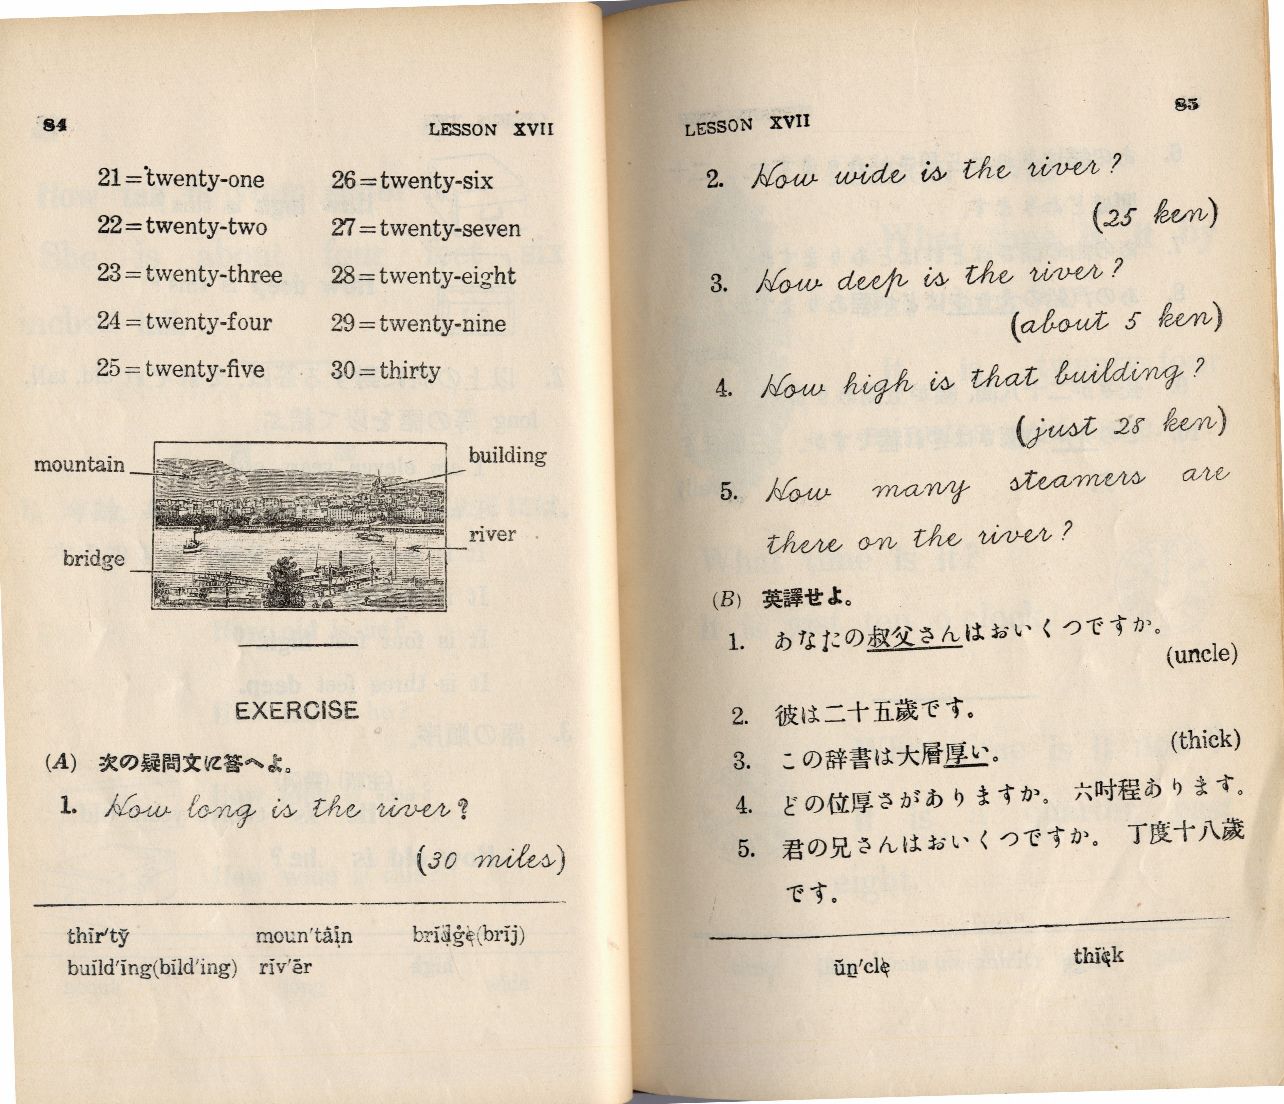 84
LESSON XVII
21=twenty-one 26=twenty-six
22=twenty-two 27=twenty-seven
23=twenty-three 28=twenty-eight
24=twenty-four 29=twenty-nine
25=twenty-five 30=thirty
mountain
building
river
bridge
EXERCISE
(A) 次の疑問文に答へよ。
1. How long is the river?
(30 miles)
thīr′tў moun′tāin brĭdge(brĭj)
build′ing(bĭld′ing) rĭv′ẽr
LESSON XVII
85
2. How wide is the river?
(25 ken)
3. How deep is the river?
(about 5 ken)
4. How high is that building?
(just 28 ken)
5. How many steamers are
there on the river?
(B) 英譯せよ。
1. あなたの叔父さんはおいくつですか。
(uncle)
2. 彼は二十五歲です。
3. この辞書は大層厚い。
(thick)
4. どの位厚さがありますか。 六吋程あります。
5. 君の兄さんはおいくつですか。 丁度十八歲
です。
ŭn′cle thick